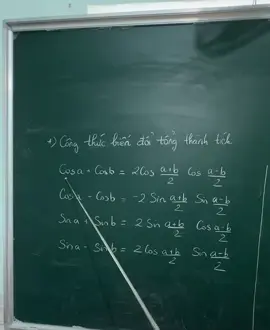 *) Công thức biến đổi tổng thành tích
Cosa + Cosb = 2Cos \frac{a+b}{2} Cos \frac{a-b}{2}
Cosa - Cosb = -2 Sin \frac{a+b}{2} Sin \frac{a-b}{2}
Sina + Sinb = 2 Sin \frac{a+b}{2} Cos \frac{a-b}{2}
Sina - Sinb = 2 Cos \frac{a+b}{2} Sin \frac{a-b}{2}